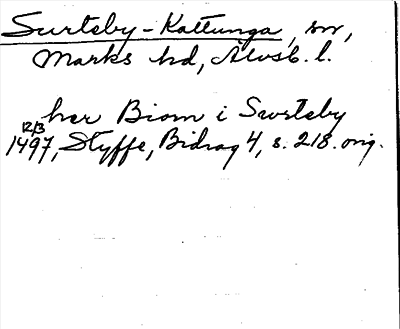 Surteby-Kattunga, sn,
Marks hd, Älvsb. l.
her Biorn i Swrteby
12/3 1497, Styffe, Bidrag 4, s. 218. orig.